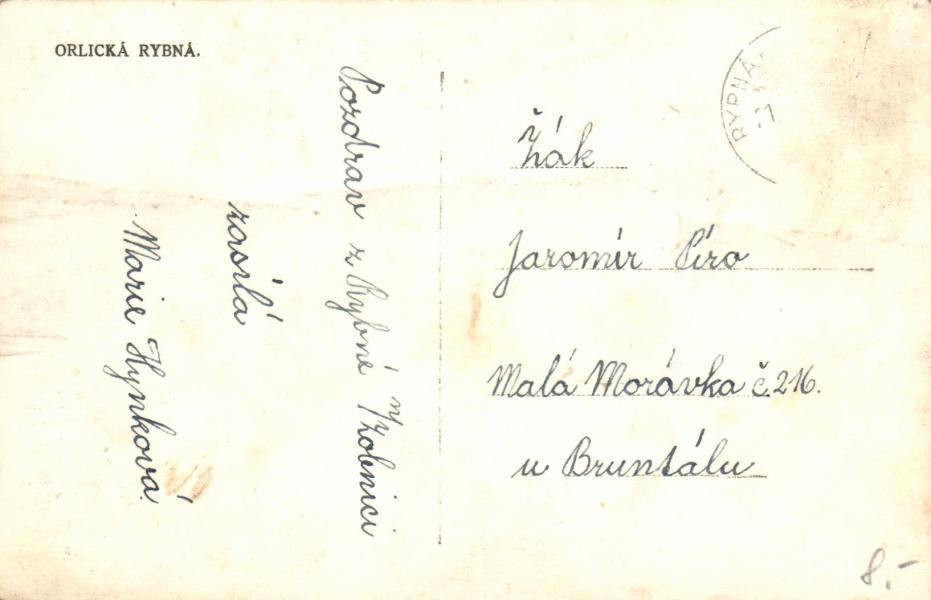 ORLICKÁ RYBNÁ.
Pozdrav z Rybné n/Zobnici
zaslá
Marie Hynková
RYBNÁ
Žák
Jaromír Píro
Malá Morávka č. 216.
u Bruntálu
8.-